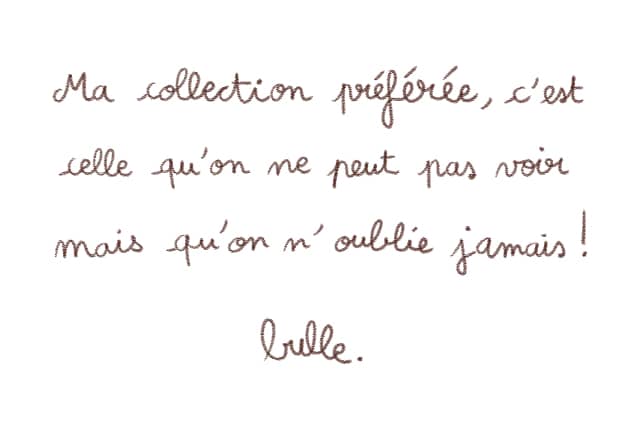 Ma collection préférée, c'est
celle qu'on ne peut pas voir
mais qu'on n'oublie jamais !
bulle.